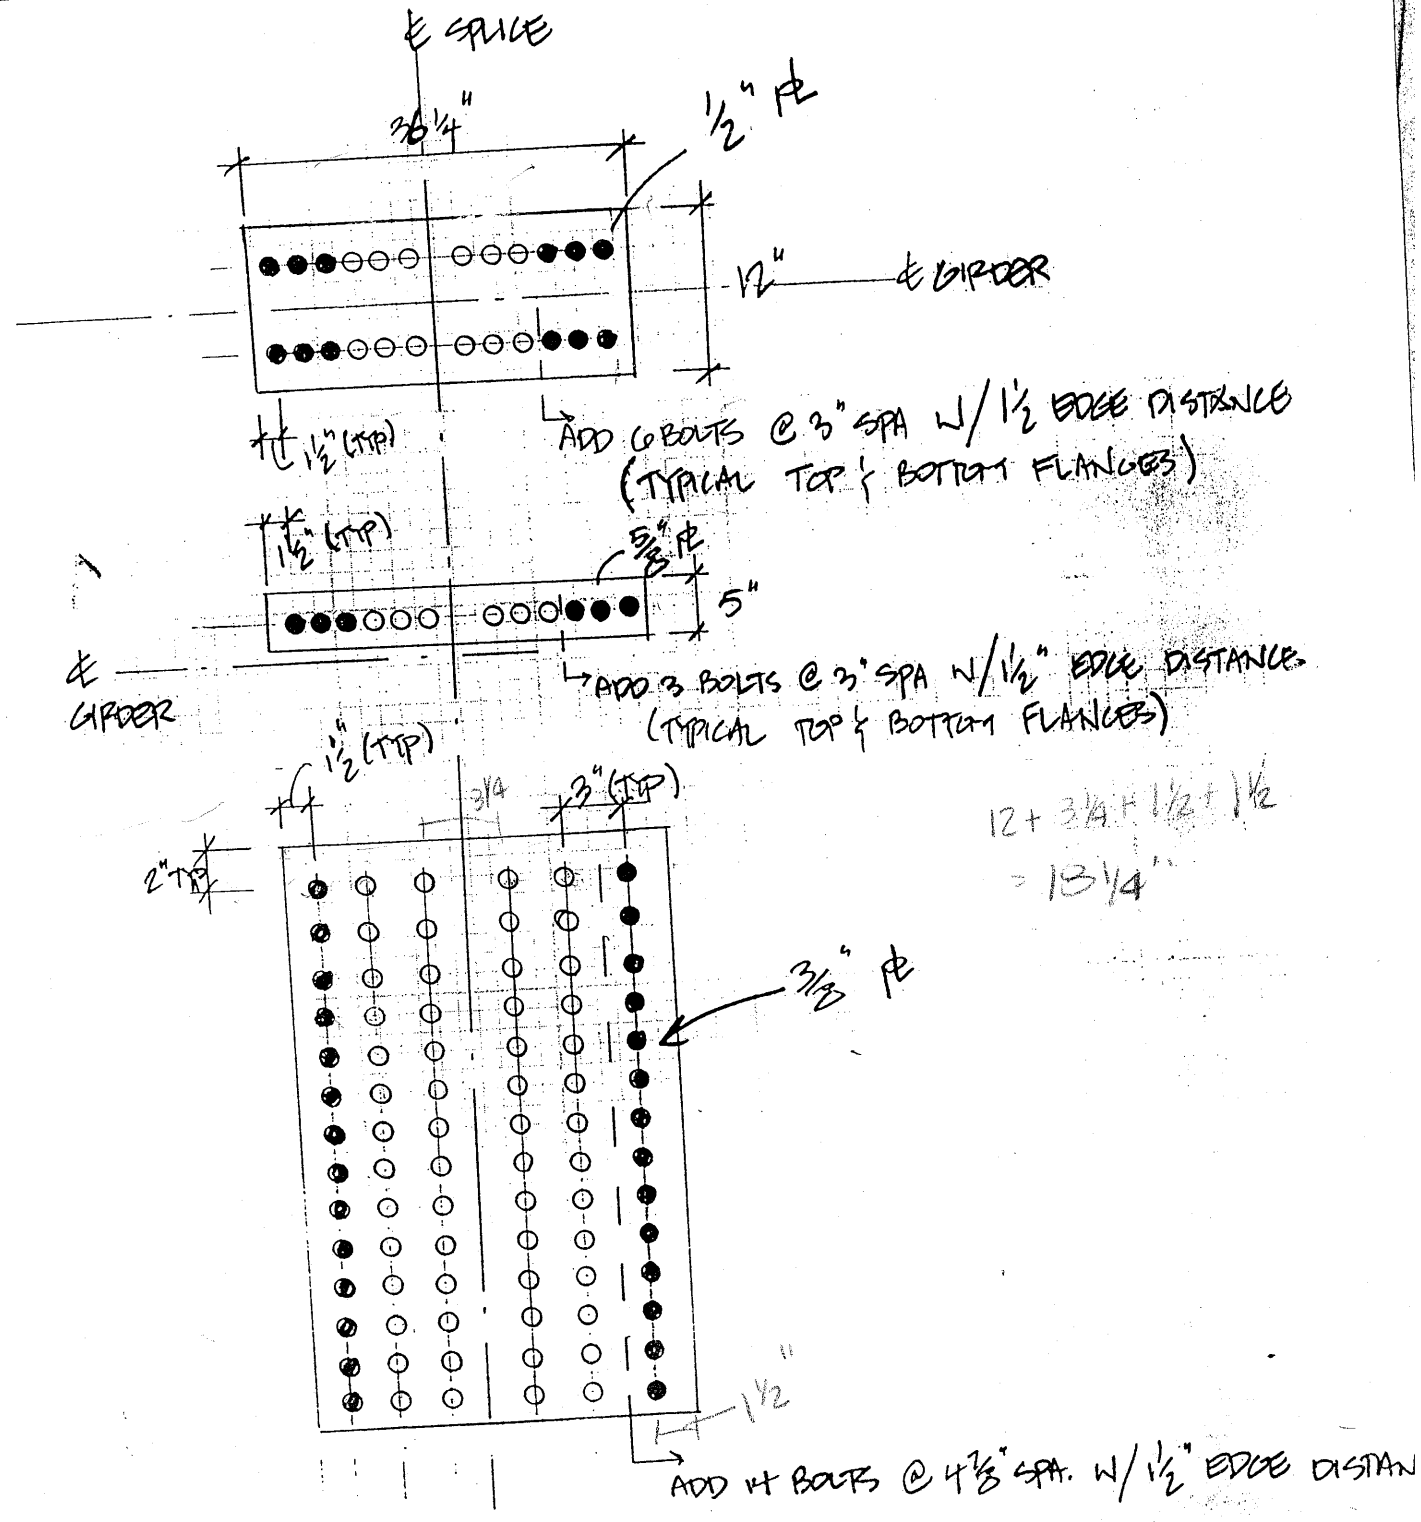 ℄ SPLICE
36 1/4"
1/2" ℙL
12"
℄ GIRDER
1 1/2" (TYP)
ADD 6 BOLTS @ 3" SPA W/ 1 1/2 EDGE DISTANCE
(TYPICAL TOP & BOTTOM FLANGES)
1 1/2" (TYP)
5/8" ℙL
5"
℄
GIRDER
ADD 3 BOLTS @ 3" SPA W/ 1 1/2" EDGE DISTANCE.
(TYPICAL TOP & BOTTOM FLANGES)
1 1/2" (TYP)
3 1/4
3" (TYP)
12 + 3 1/4 + 1 1/2 + 1 1/2
= 18 1/4"
2" TYP
3/8" ℙL
1 1/2"
ADD 14 BOLTS @ 4 7/8" SPA. W/ 1 1/2" EDGE DISTAN